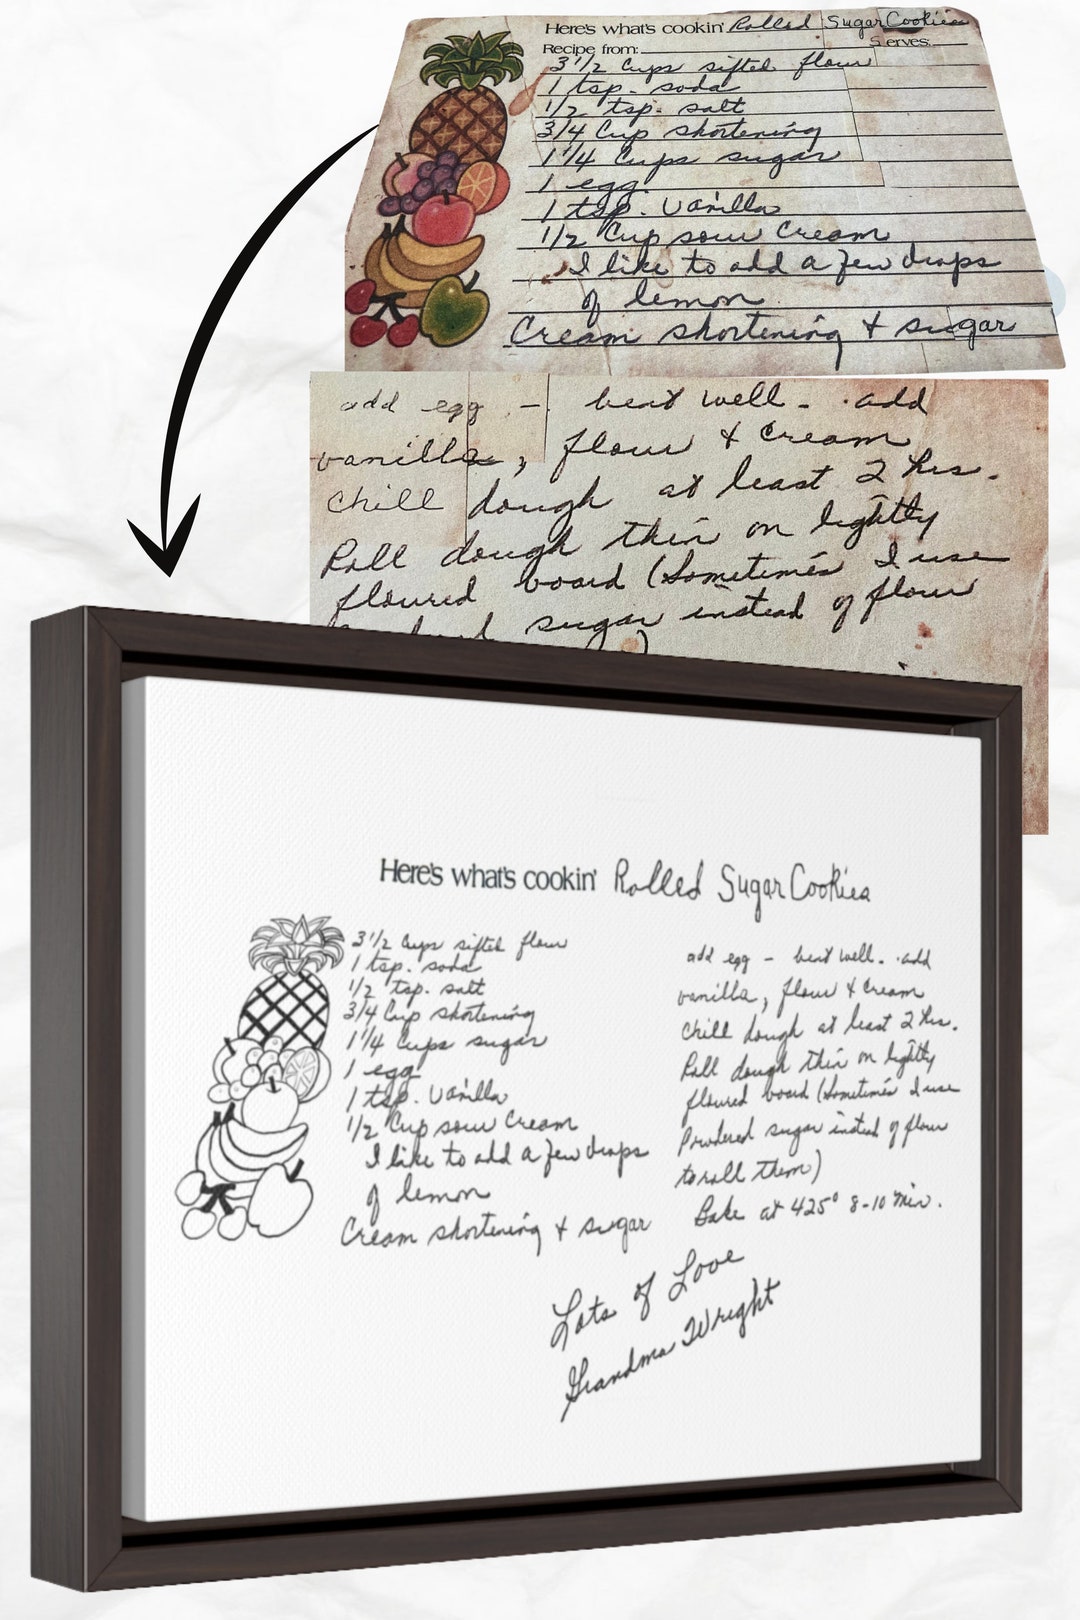 Here's what's cookin' Rolled Sugar Cookies
Recipe from: Serves:
3 1/2 Cups sifted flour
1 tsp. soda
1/2 tsp. salt
3/4 Cup shortening
1 1/4 Cups sugar
1 egg
1 tsp. vanilla
1/2 Cup sour cream
I like to add a few drops
of lemon
Cream shortening & sugar
add egg - beat well - add
vanilla, flour & cream
chill dough at least 2 hrs.
Roll dough thin on lightly
floured board (Sometimes I use
sugar instead of flour
Here's what's cookin' Rolled Sugar Cookies
3 1/2 Cups sifted flour
1 tsp. soda
1/2 tsp. salt
3/4 Cup shortening
1 1/4 Cups sugar
1 egg
1 tsp. vanilla
1/2 Cup sour cream
I like to add a few drops
of lemon
Cream shortening & sugar
add egg - beat well - add
vanilla, flour & cream
chill dough at least 2 hrs.
Roll dough thin on lightly
floured board (Sometimes I use
Powdered sugar instead of flour
to roll them)
Bake at 425° 8-10 min.
Lots of Love
Grandma Wright